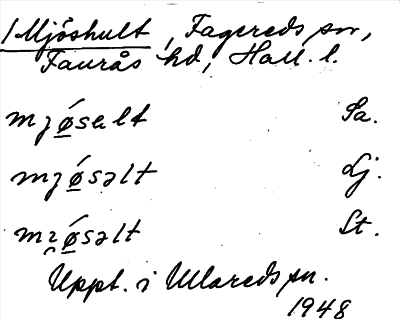 /Mjöshult, Fagereds sn,
Faurås hd, Hall. l.
mjǿ̲salt Sa.
mjǿ̲səlt Lj.
mi̯ǿ̲səlt St.
Uppt. i Ullareds sn.
1948